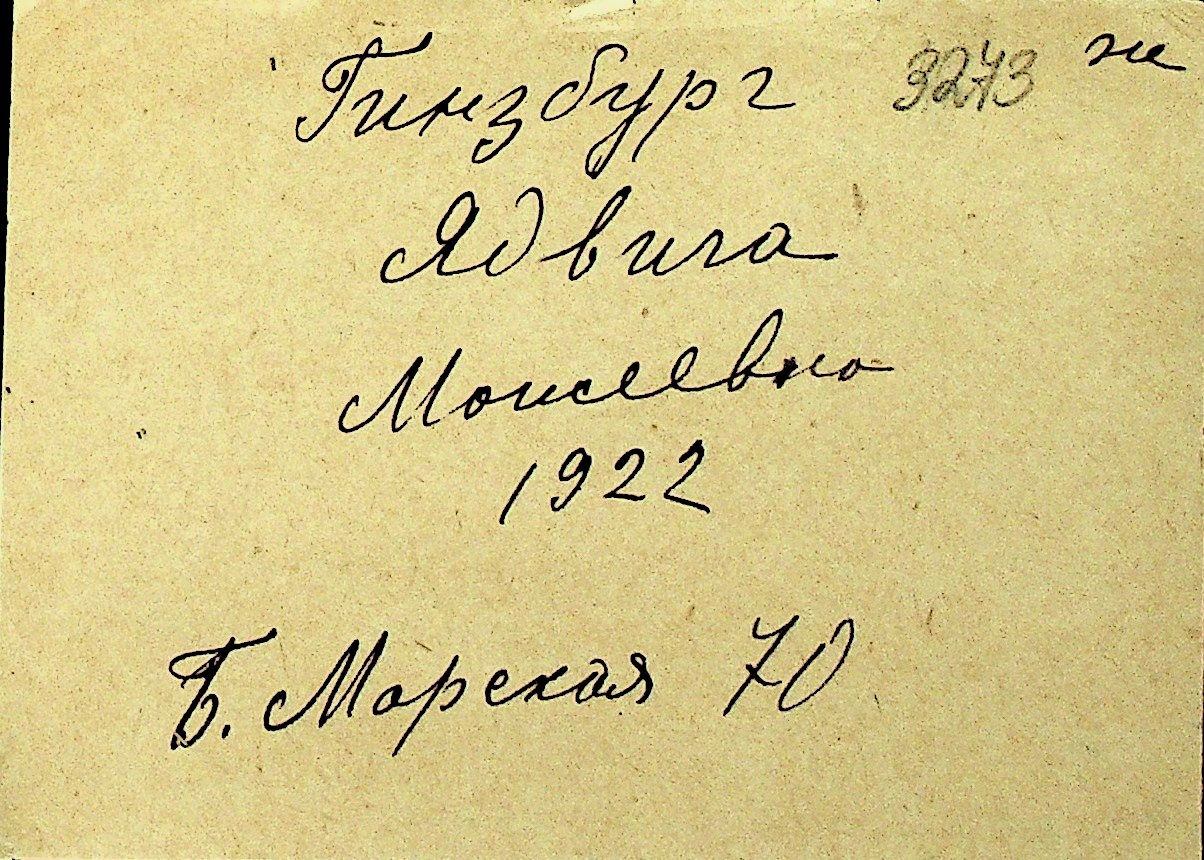 Гинзбург 3273
Ядвига
Моисеевна
1922
Б. Морская 70